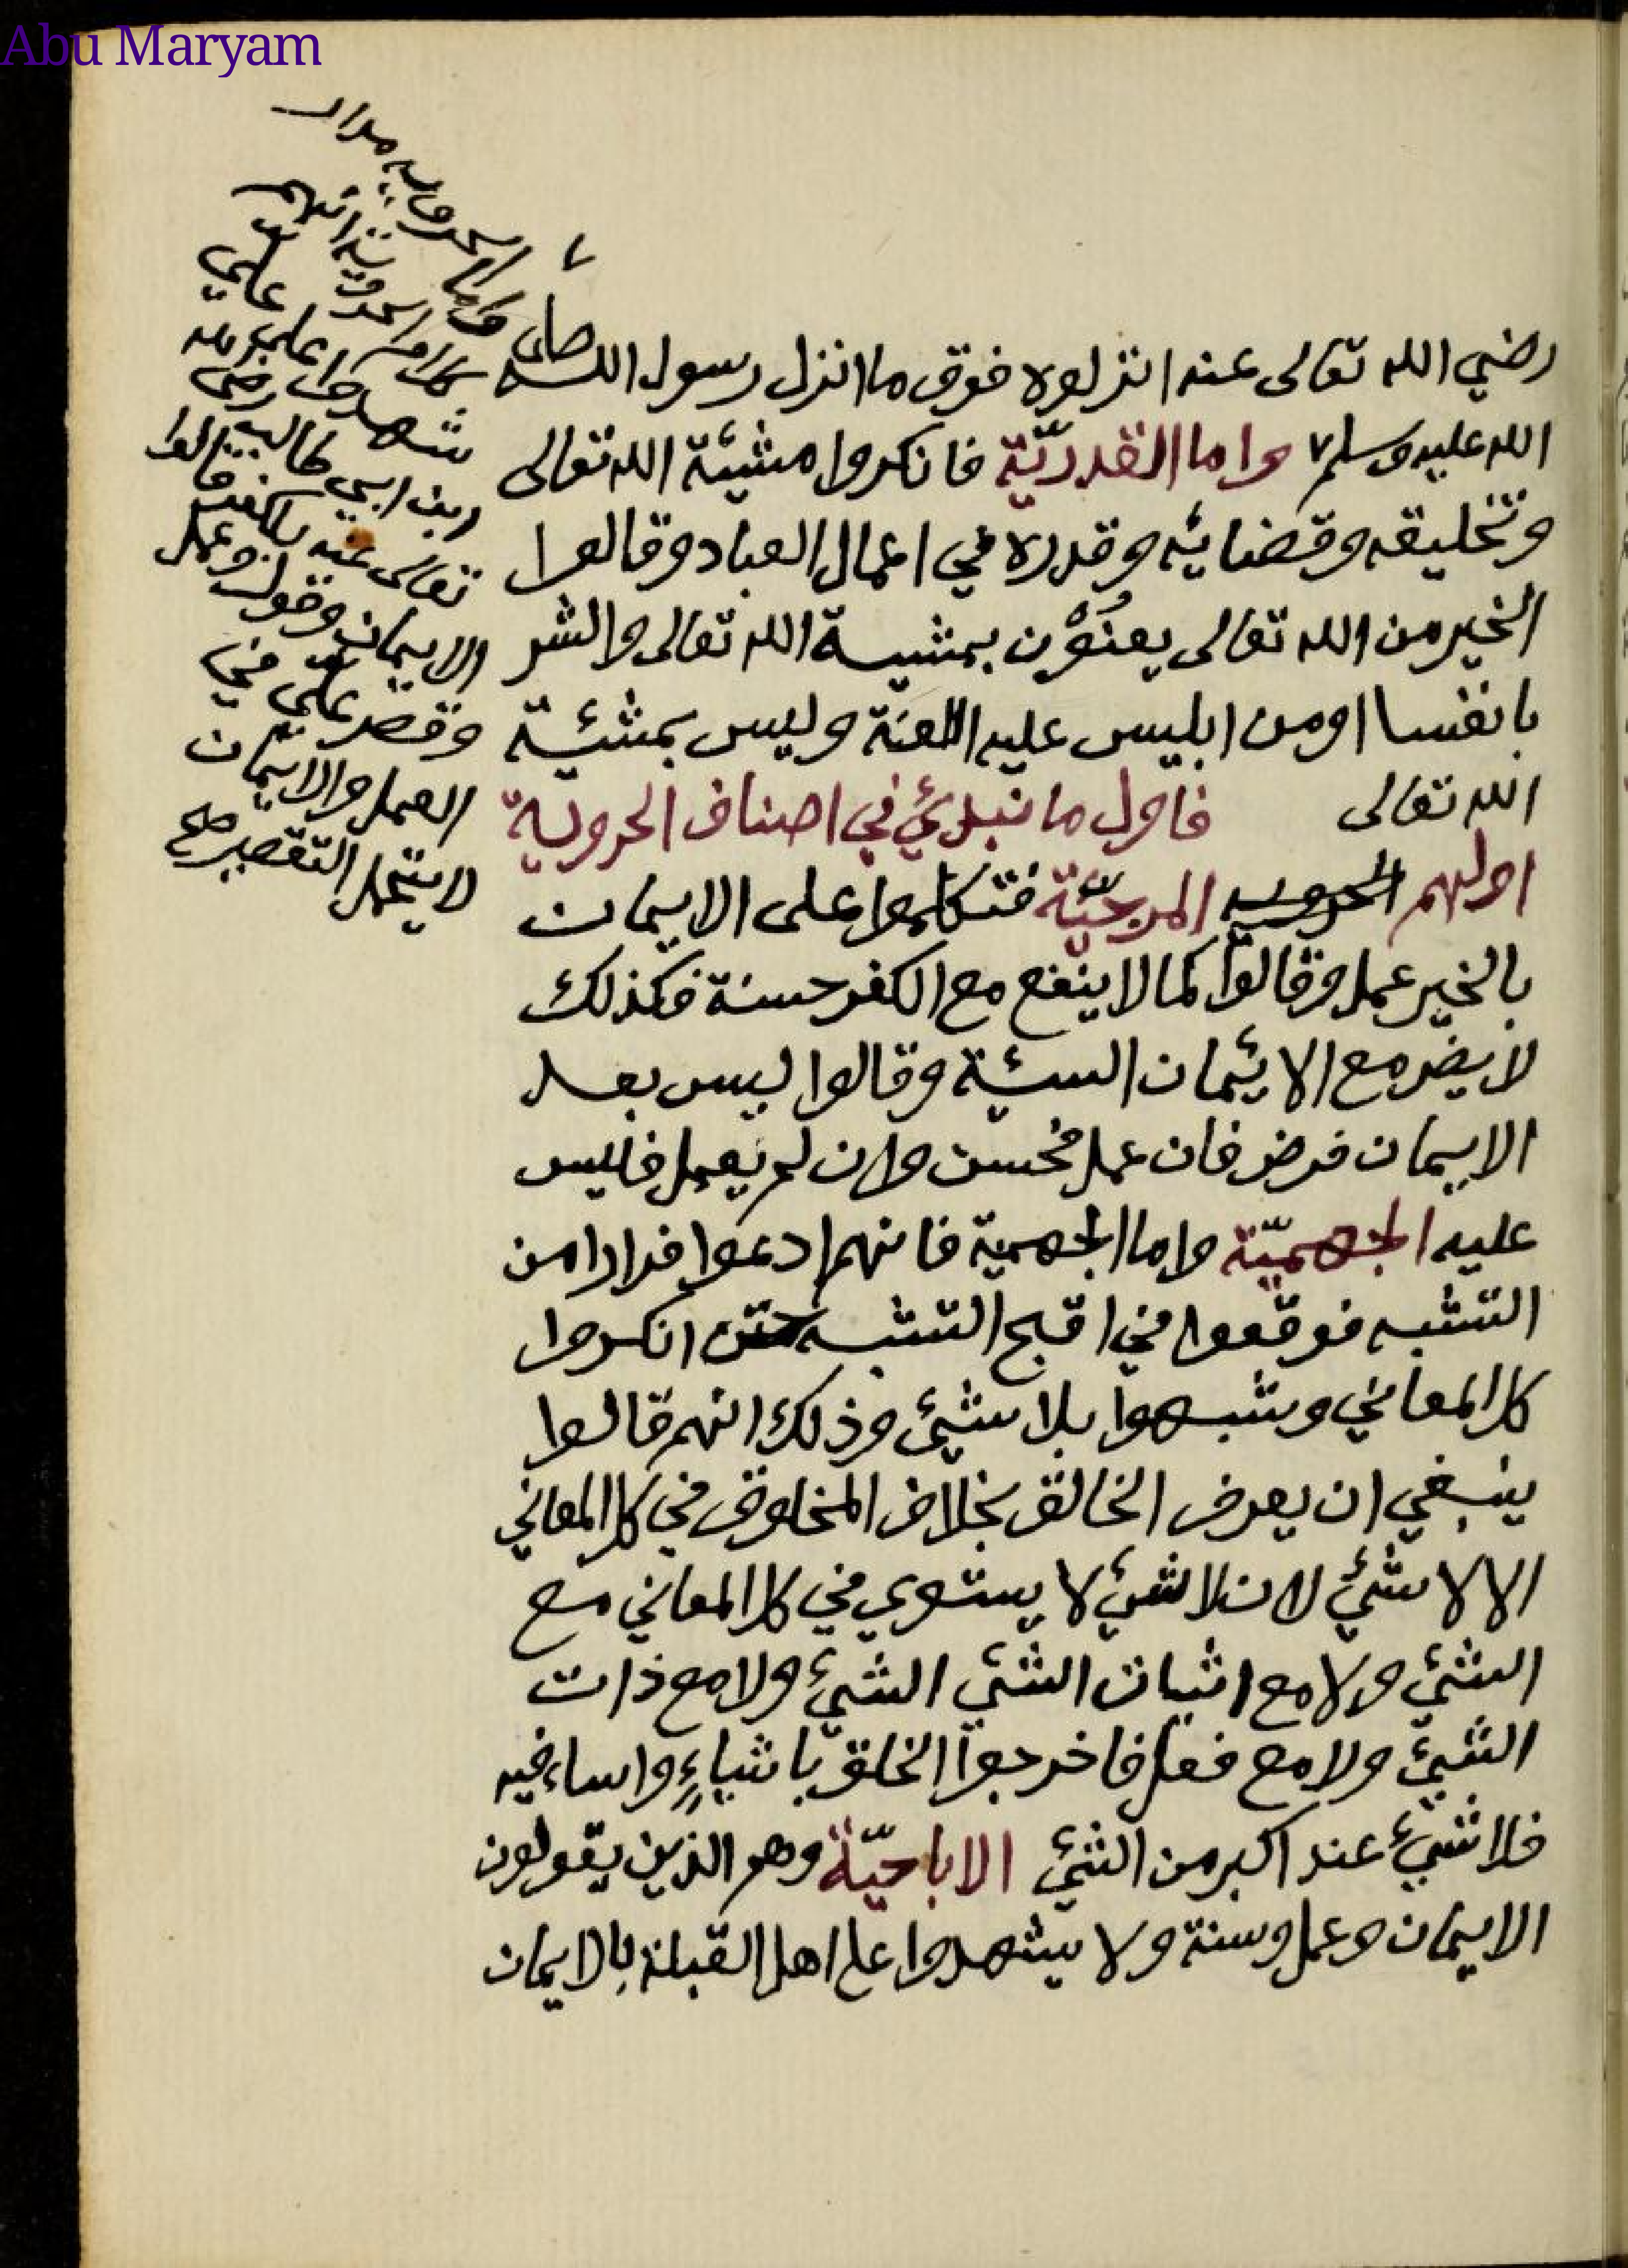 Abu Maryam
رضي الله تعالى عنه انزلوه فوق ما انزل رسول الله صلى
الله عليه وسلم واما القدريّة فانكروا مشيئة الله تعالى
وتخليقه وقضايئه وقدره في اعمال العباد وقالوا
الخير من الله تعالى يعنون بمشيسة الله تعالى والشر
بانفسا اومن ابليس عليه اللعنة وليس بمشئية
الله تعالى فاول ما نبدئ في اصناف الحرورية
اولهم المرجئّة فتكلموا على الايمان
بالخير عمل وقالوا كما لا ينفع مع الكفر حسنة فكذلك
لا يضر مع الايئمان السئية وقالوا ليس بعد
الايمان فرض فان عمل فحسن وان لم يعمل فليس
عليه الجهميّة واما الجهمية فانهم ادعوا فرارا من
التشبه فوقعوا في اقبح التشبه حتى انكروا
كل المعاني وشبهوا بلا شيئ وذلك انهم قالوا
ينبغي ان يعرف الخالق بخلاف المخلوق في كل المعاني
الا لا شيئ لان لا شيئ لا يستوي في كل المعاني مع
الشيئ ولا مع اثبات الشئ الشيئ ولا مع ذات
الشيئ ولا مع فعل فاخرجوا الخلق باشياءٍ واساء فيه
فلا شيئ عند اكبر من الشيئ الاباحيّة وهم الذين يقولون
الايمان وعمل وسنة ولا يشهدوا على اهل القبلة بالايمان
واما الحرورية
كلام الحرورية انهم
شهدوا على علي
بن ابي طالب رضى الله
تعالى عنه بالكفر قالوا
الايمان وقول وعمل
وقصر علي في
العمل والايمان
لا يتحمل التقصير صح